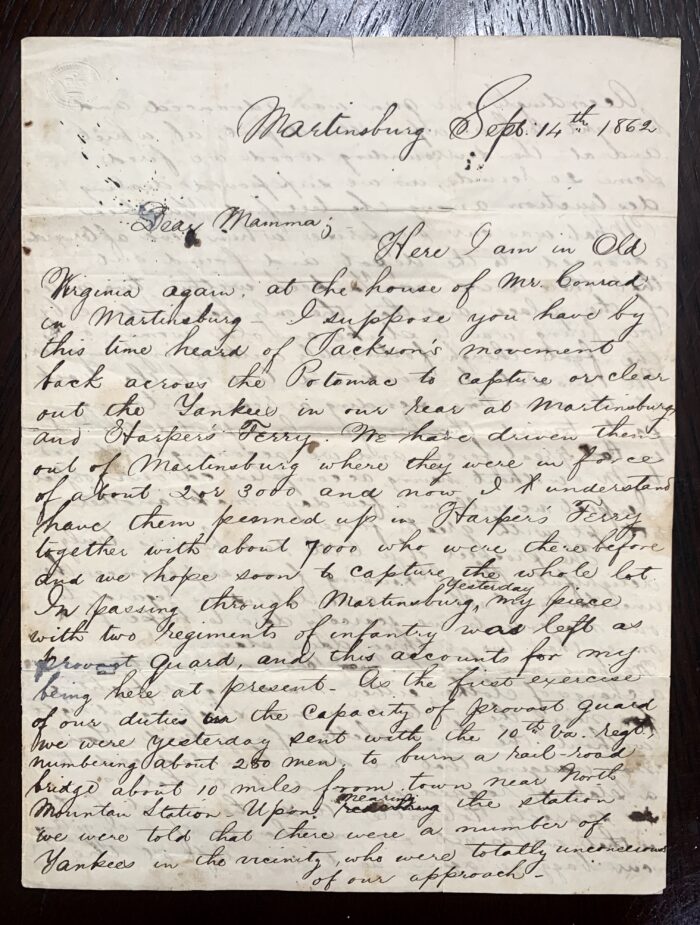 Martinsburg. Sept. 14th 1862
Dear Mamma;
Here I am in Old
Virginia again, at the house of Mr. Conrad
in Martinsburg - I suppose you have by
this time heard of Jackson's movement
back across the Potomac to capture or clear
out the Yankees in our rear at Martinsburg
and Harper's Ferry. We have driven them
out of Martinsburg where they were in force
of about 2 or 3000 and now I understand
have them penned up in Harper's Ferry
together with about 7000 who were there before
and we hope soon to capture the whole lot.
In passing through Martinsburg yesterday, my piece
with two regiments of infantry was left as
provost guard, and this accounts for my
being here at present - As the first exercise
of our duties in the capacity of provost guard
we were yesterday sent with the 10th Va. regt.
numbering about 280 men, to burn a rail-road
bridge about 10 miles from town near North
Mountain Station. Upon nearing the station
we were told that there were a number of
Yankees in the vicinity, who were totally unconscious
of our approach -